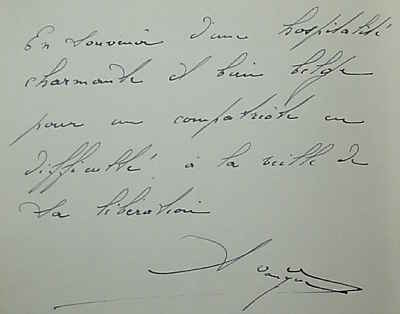 En souvenir d'une hospitalité
charmante et bien belge
pour un compatriote en
difficulté à la veille de
sa libération